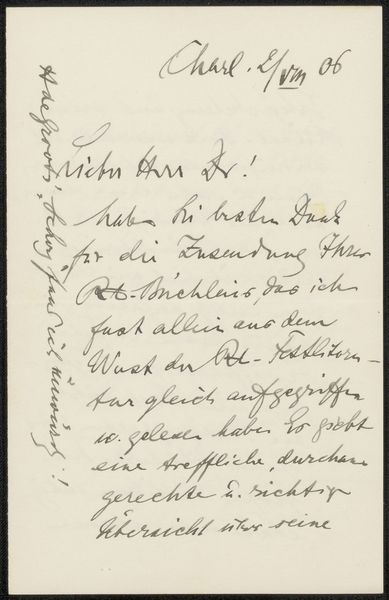 Charl. 2/VIII 06
Lieber Herr Dr!
haben Sie besten Dank
für die Zusendung Ihres
Rt-Büchleins, das ich
fast allein aus dem
Wust der Rt-Festlitera-
tur gleich aufgegriffen
u. gelesen habe. Es giebt
eine treffliche, durchaus
gerechte u. richtige
Übersicht über seine
H de Groots' fand ich !